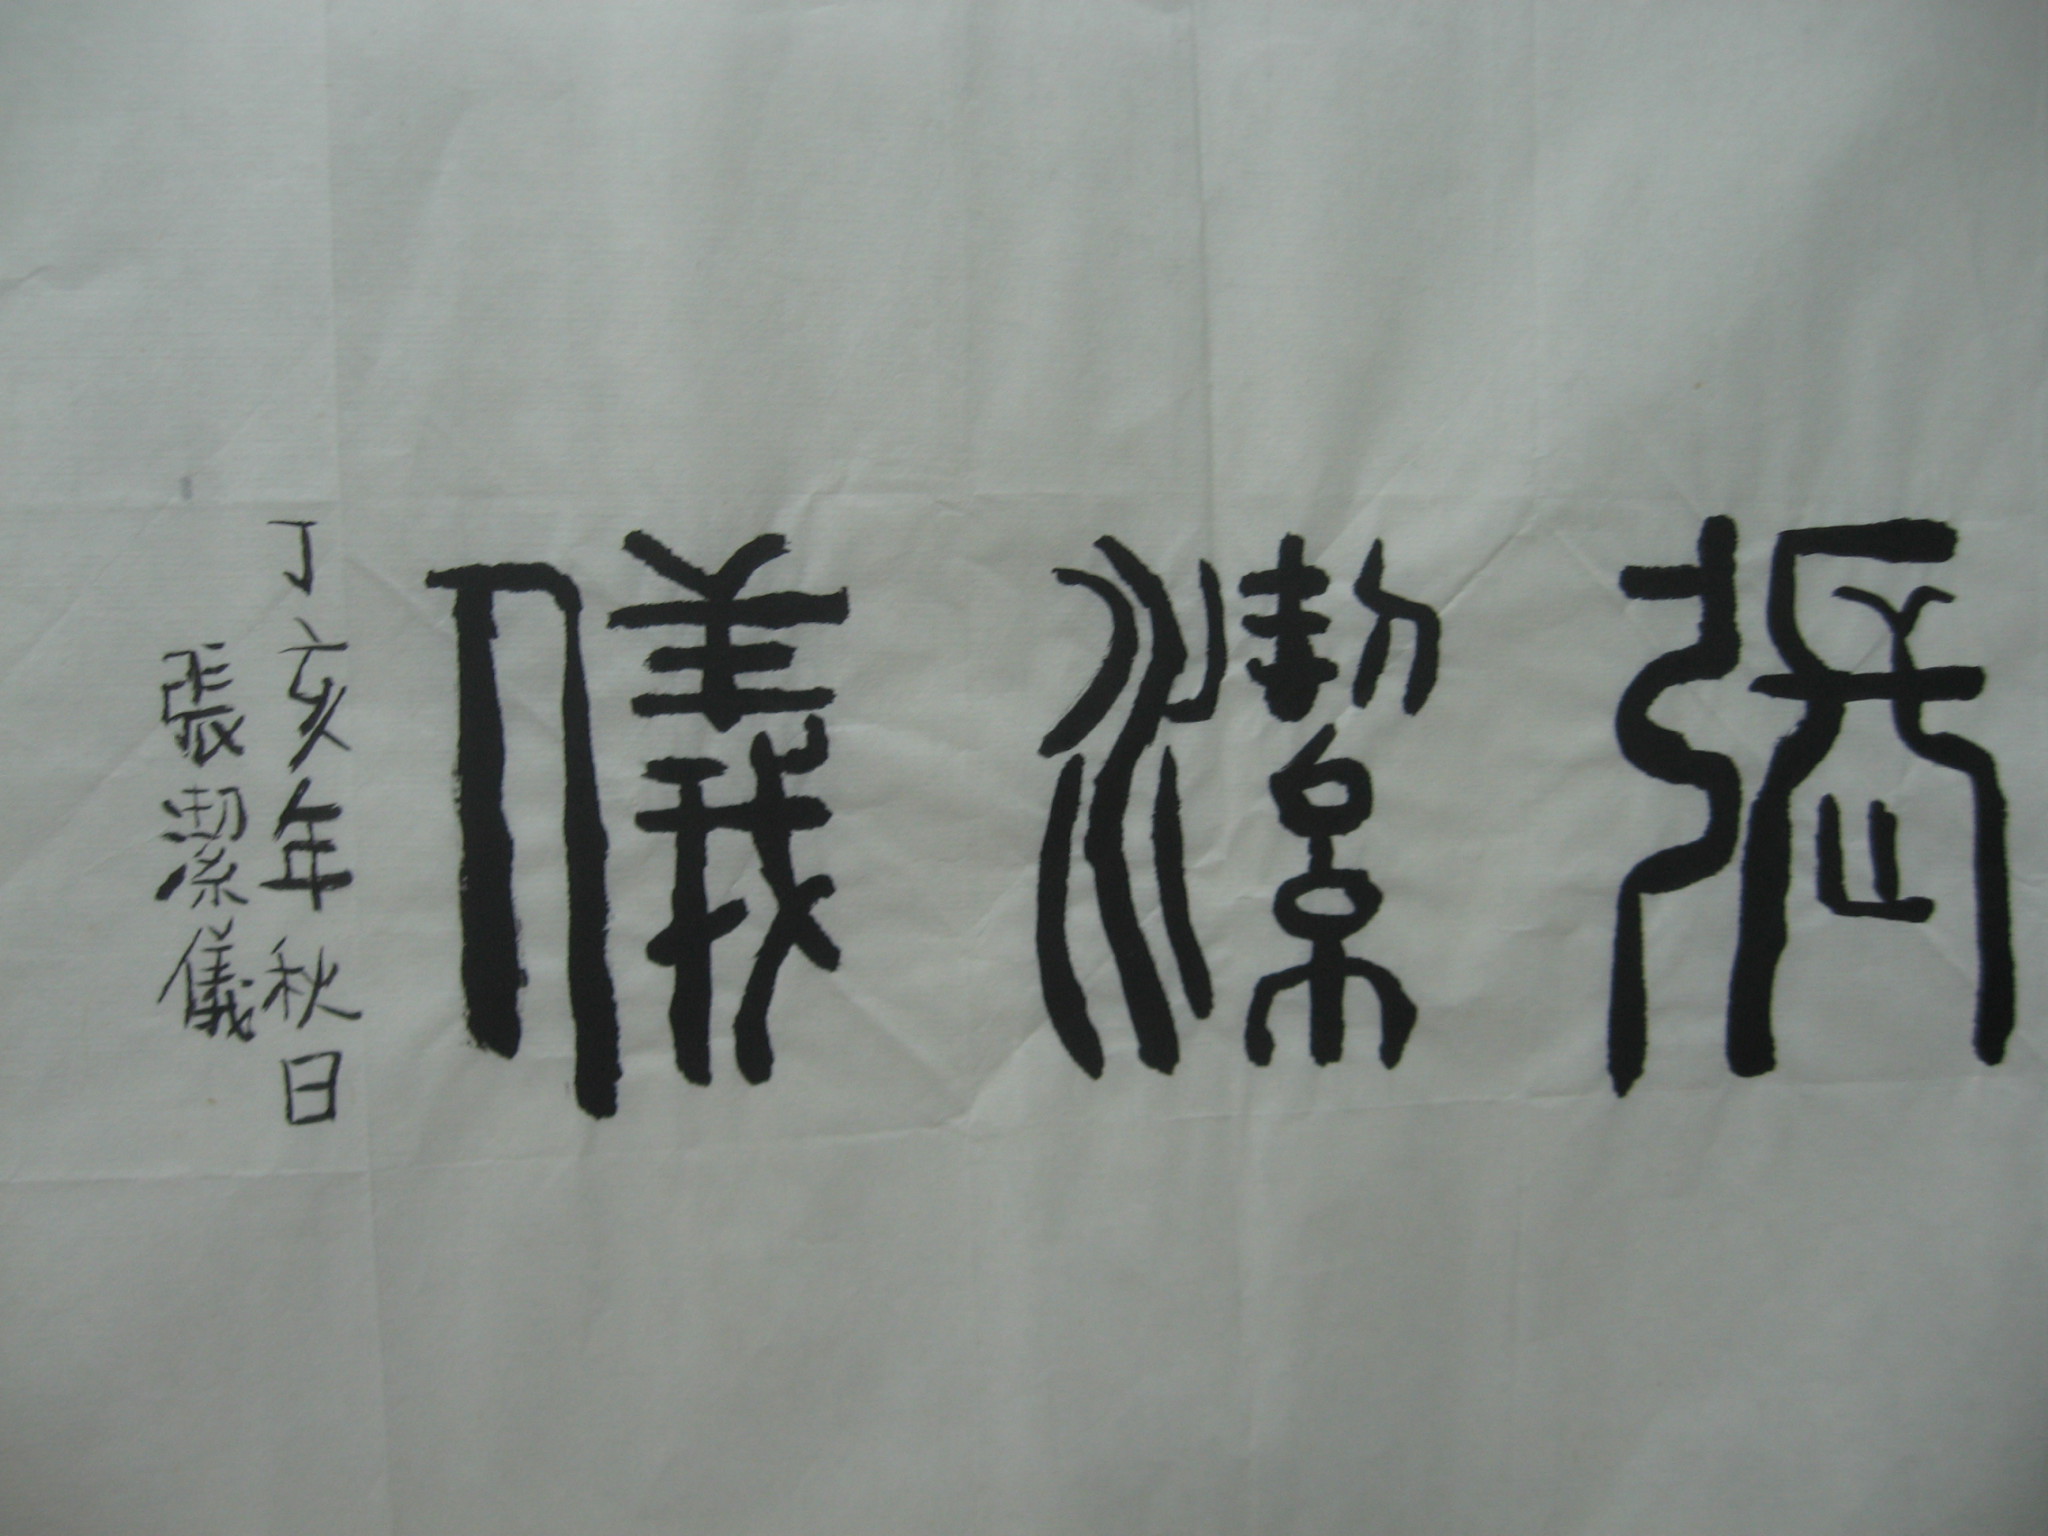 張潔儀
丁亥年秋日
張潔儀